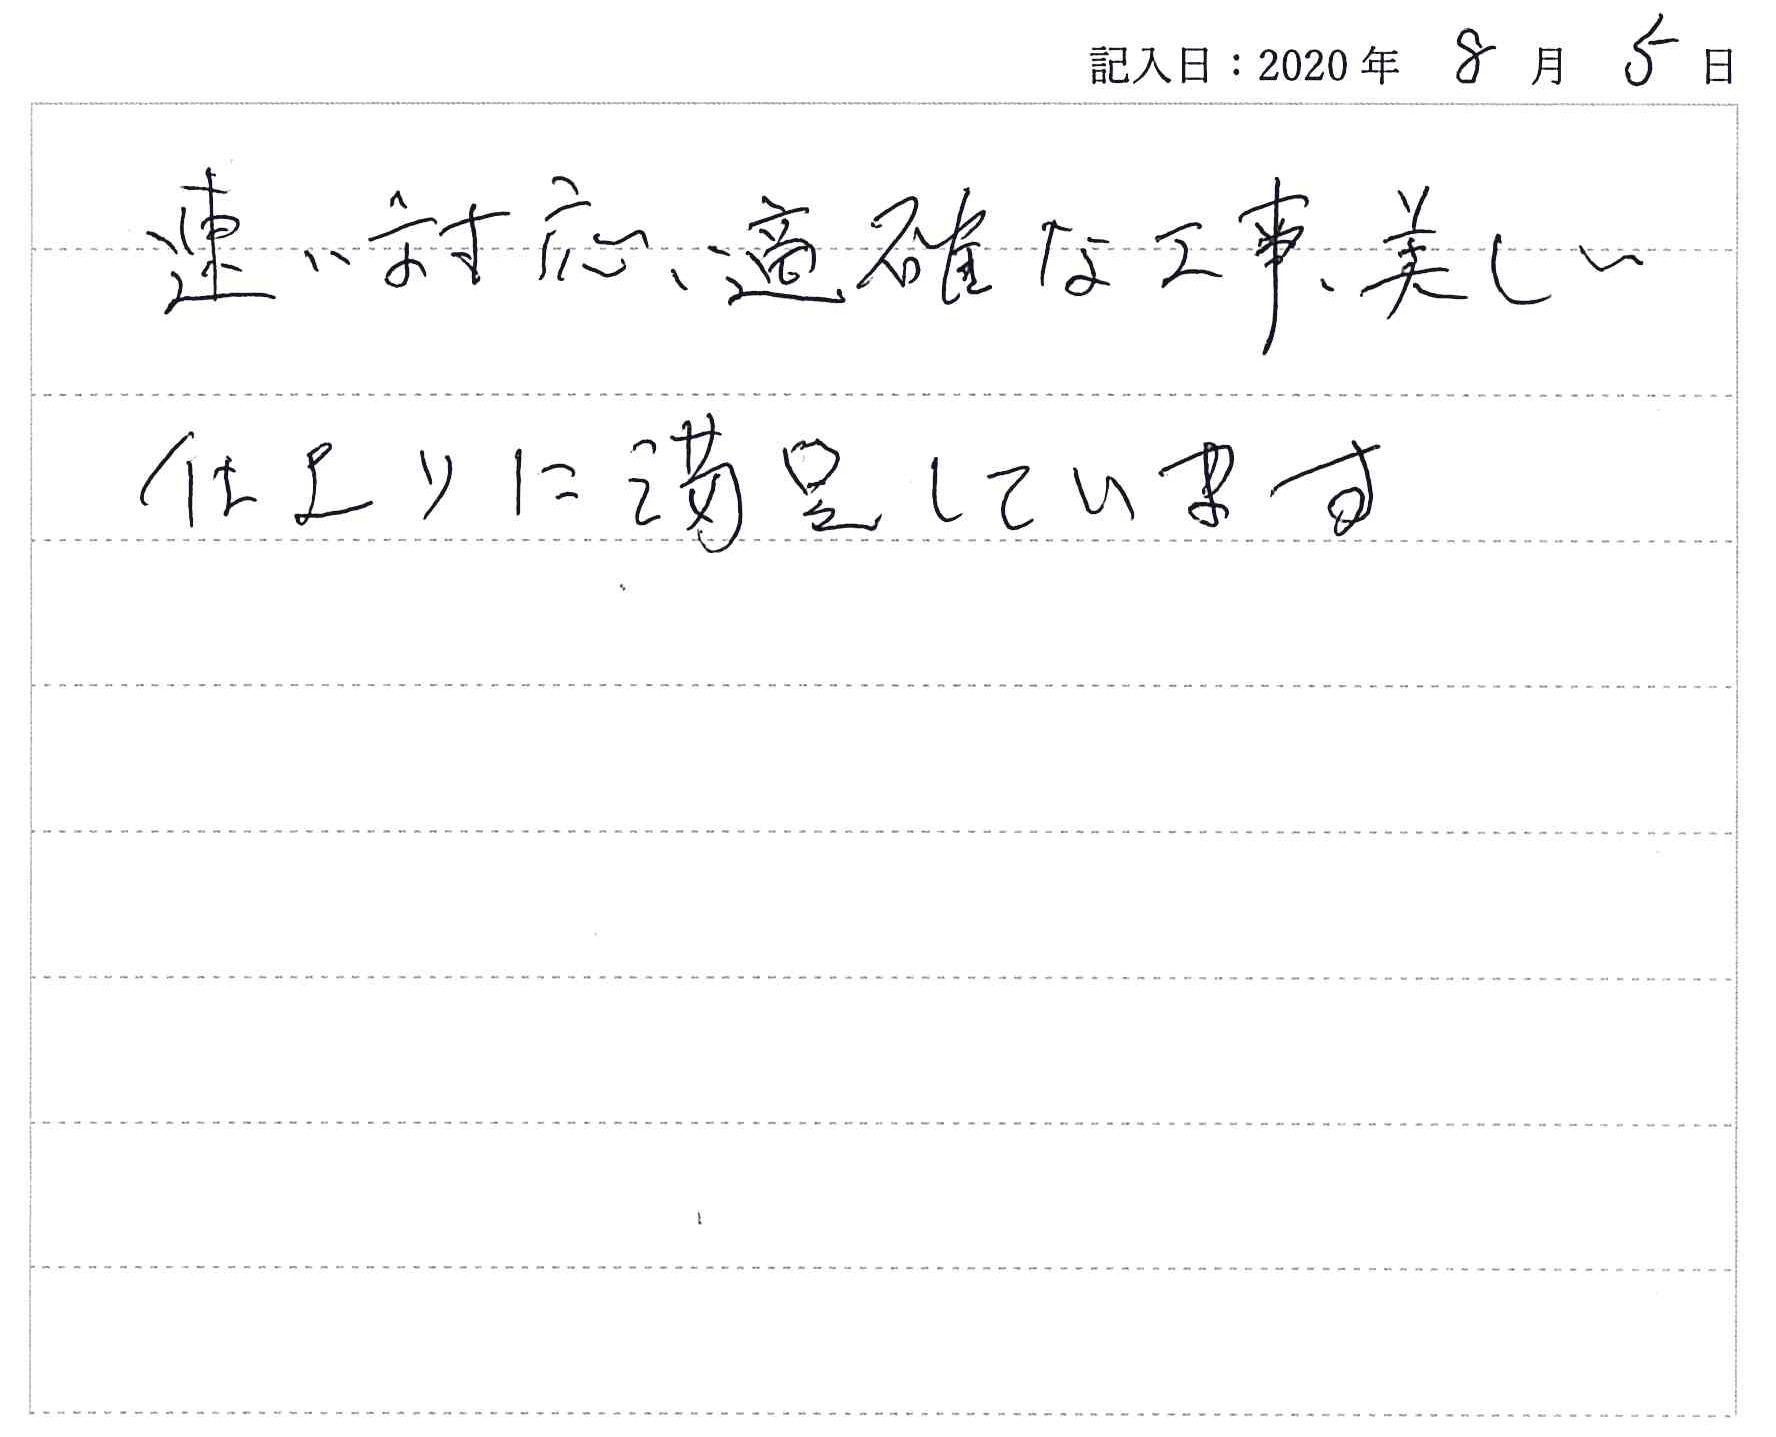 記入日：2020年 8月 5日
速い対応、適確な工事、美しい
仕上りに満足しています